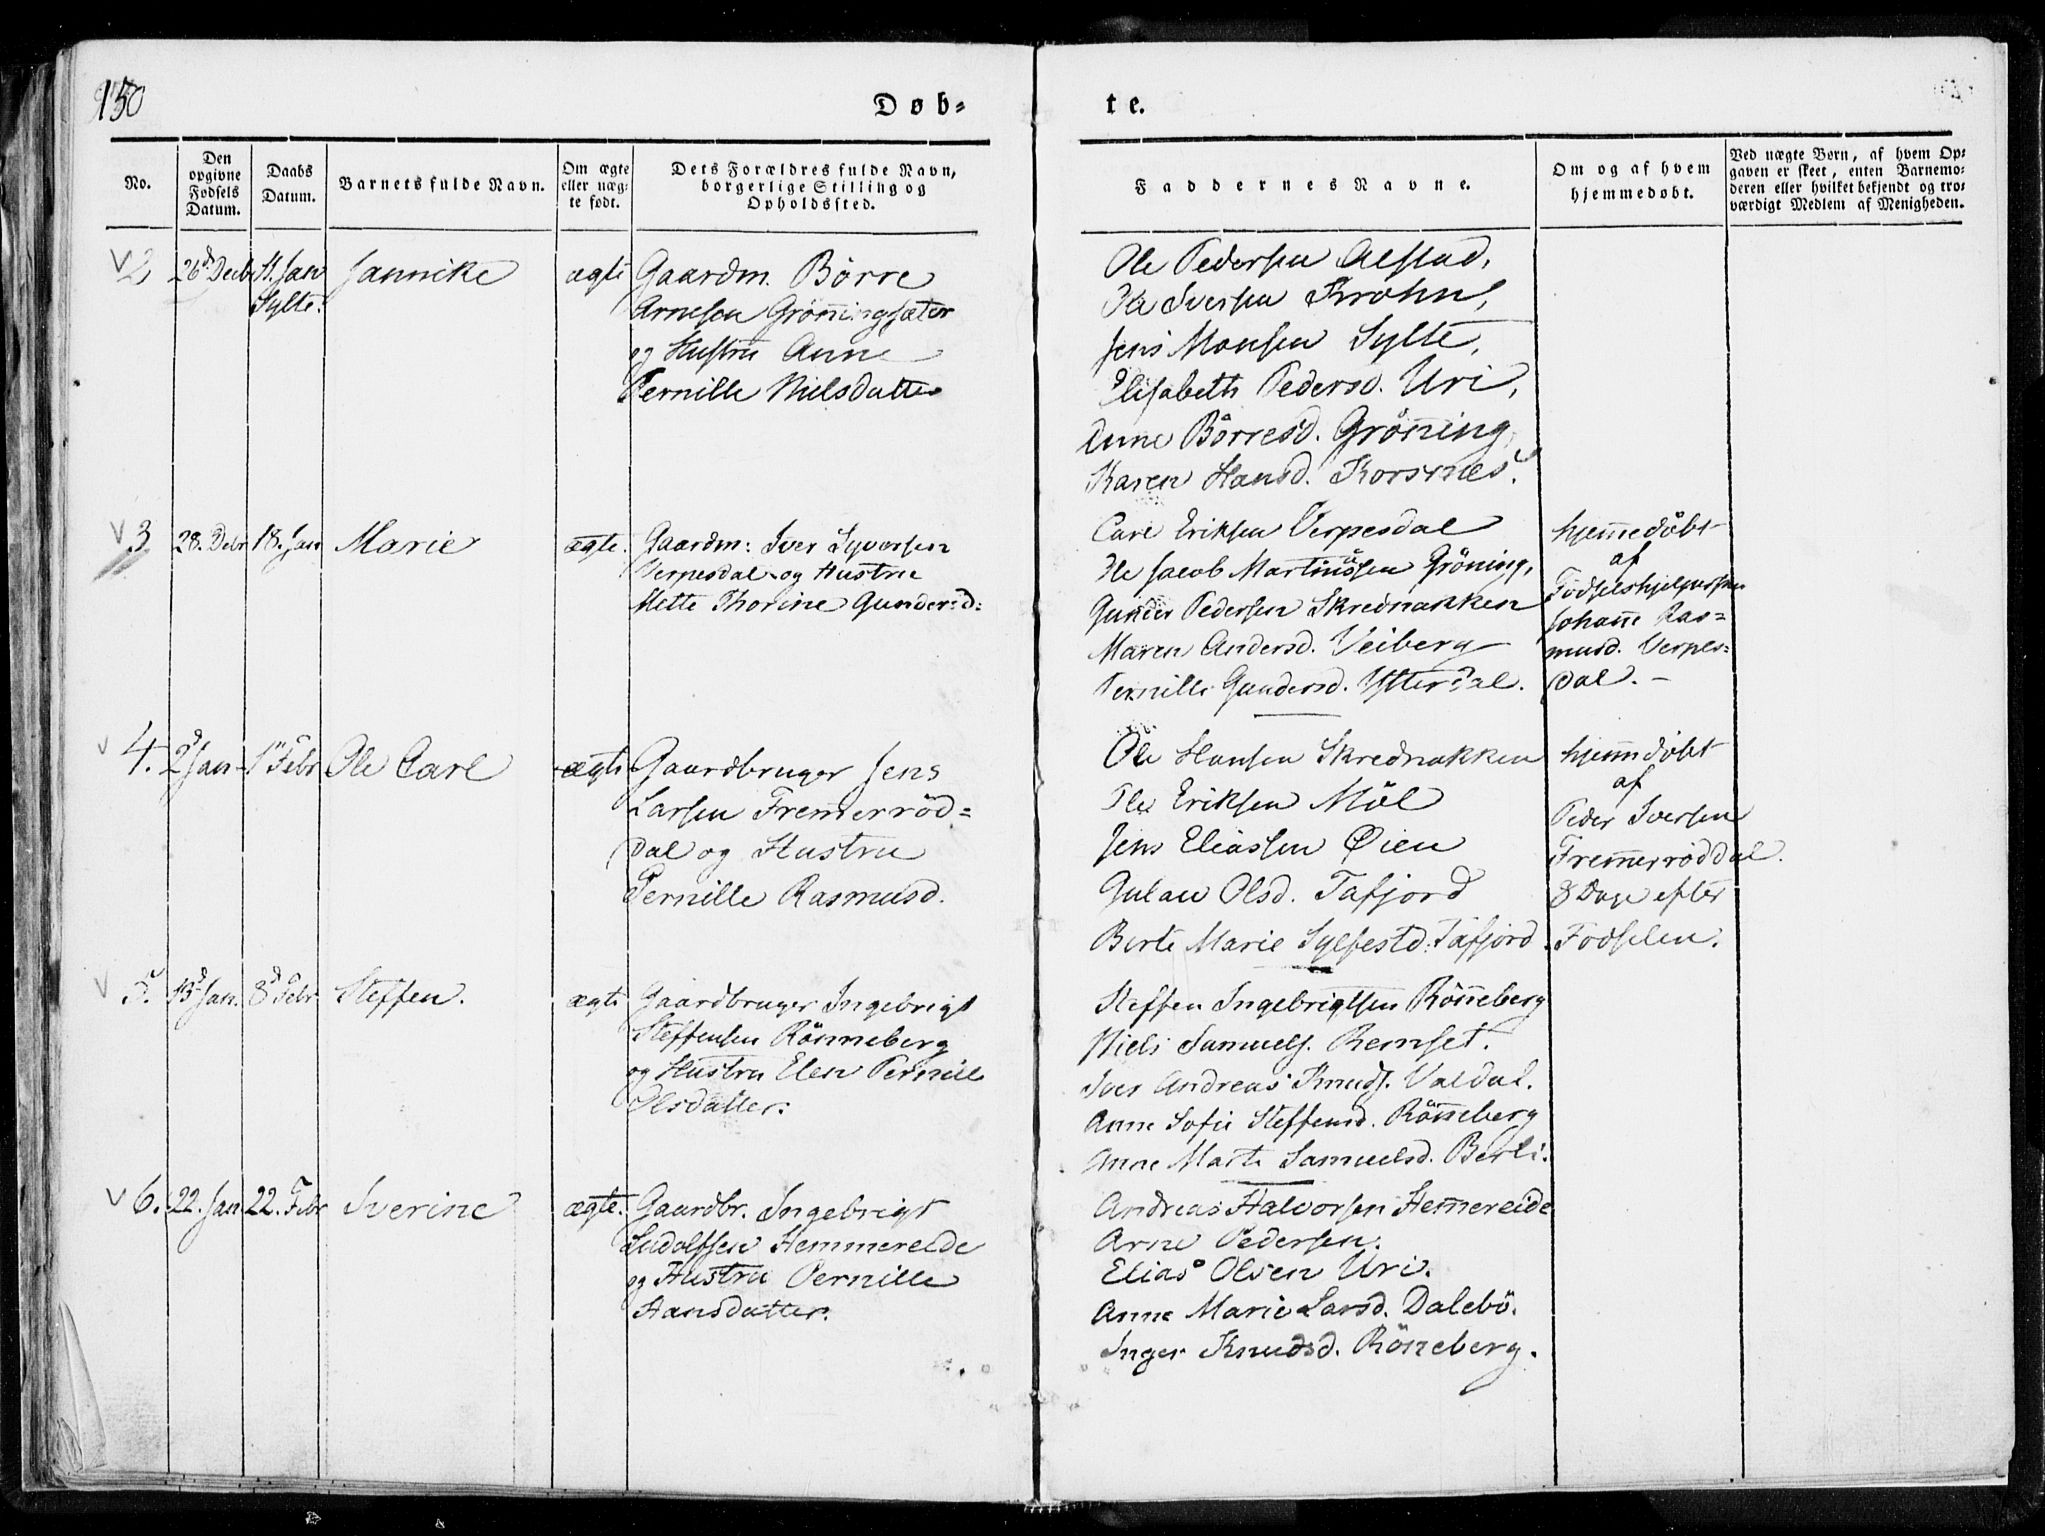 150
Døb-
te.
No.
Den opgivne Fødsels Datum.
Daabs Datum.
Barnets fulde Navn.
Om ægte eller uæg-te født.
Dets Forældres fulde Navn, borgerlige Stilling og Opholdssted.
Faddernes Navne.
Om og af hvem hjemmedøbt.
Ved uægte Børn, af hvem Op-gaven er skeet, enten Barnemo-deren eller hvilket bekjendt og tro-værdigt Medlem af Menigheden.
2
26d Decb
Jan
Sylte.
Jannike
ægte
Gaardm. Börre
Arnesen Grönningsæter
og Hustru Anne
Pernille Nielsdatter
Ole Pedersen Alstad,
Iversen Krohn,
Jens Monsen Sylte,
Elisabeth Pedersd. Uri,
Anne Börresd. Gröning,
Karen Hansd. Korsnes.
3
28. Debr
18. Jan
Marie
ægte.
Gaardm: Iver Syversen
Verpesdal og Hustru
Mette Thorine Gundersd:
Carl Eriksen Verpesdal
Ole Jacob Martinussen Gröning,
Gunder Pedersen Skrednakken
Maren Andersd. Veiberg
Pernille Gundersd. Ytterdal.
hjemedöbt
af
Födselshjelpersken
Johanne Ras=
musd. Verpes=
dal. -
4.
2d Jan
1te Febr
Ole Carl
ægte
Gaardbruger Jens
Larsen Fremerröd=
dal og Hustru
Pernille Rasmusd.
Ole Hansen Skrednakken
Ole Eriksen Möl
Jens Eliassen Øien
Gulau Olsd. Tafjord
Berte Marie Sylfestd. Tafjord.
hjemdöbt
af
Peder Iversen
Fremerröddal.
8 Dage efter
Fodselen.
5.
13d Jan.
8d Febr.
Steffen.
ægte
Gaardbruger Ingebrigt
Steffensen Rönneberg
og Hustru Elen Pernille
Olsdatter.
Steffen Ingebrigtsen Röneberg
Niels Samuels. Remset.
Iver Andreas Knuds. Valdal.
Anne Sofie Steffensd. Röneberg
Anne Marte Samuelsd. Berli.
6.
22. Jan
22. Febr
Iverine
ægte.
Gaardbr. Ingebrigt
Ludolfsen Hemmereide
og Hustru Pernille
Hansdatter.
Andreas Halvorsen Hemereide
Arne Pedersen.
Elias Olsen Uri.
Anne Marie Larsd. Dalebö.
Inger Knudsd. Röneberg.